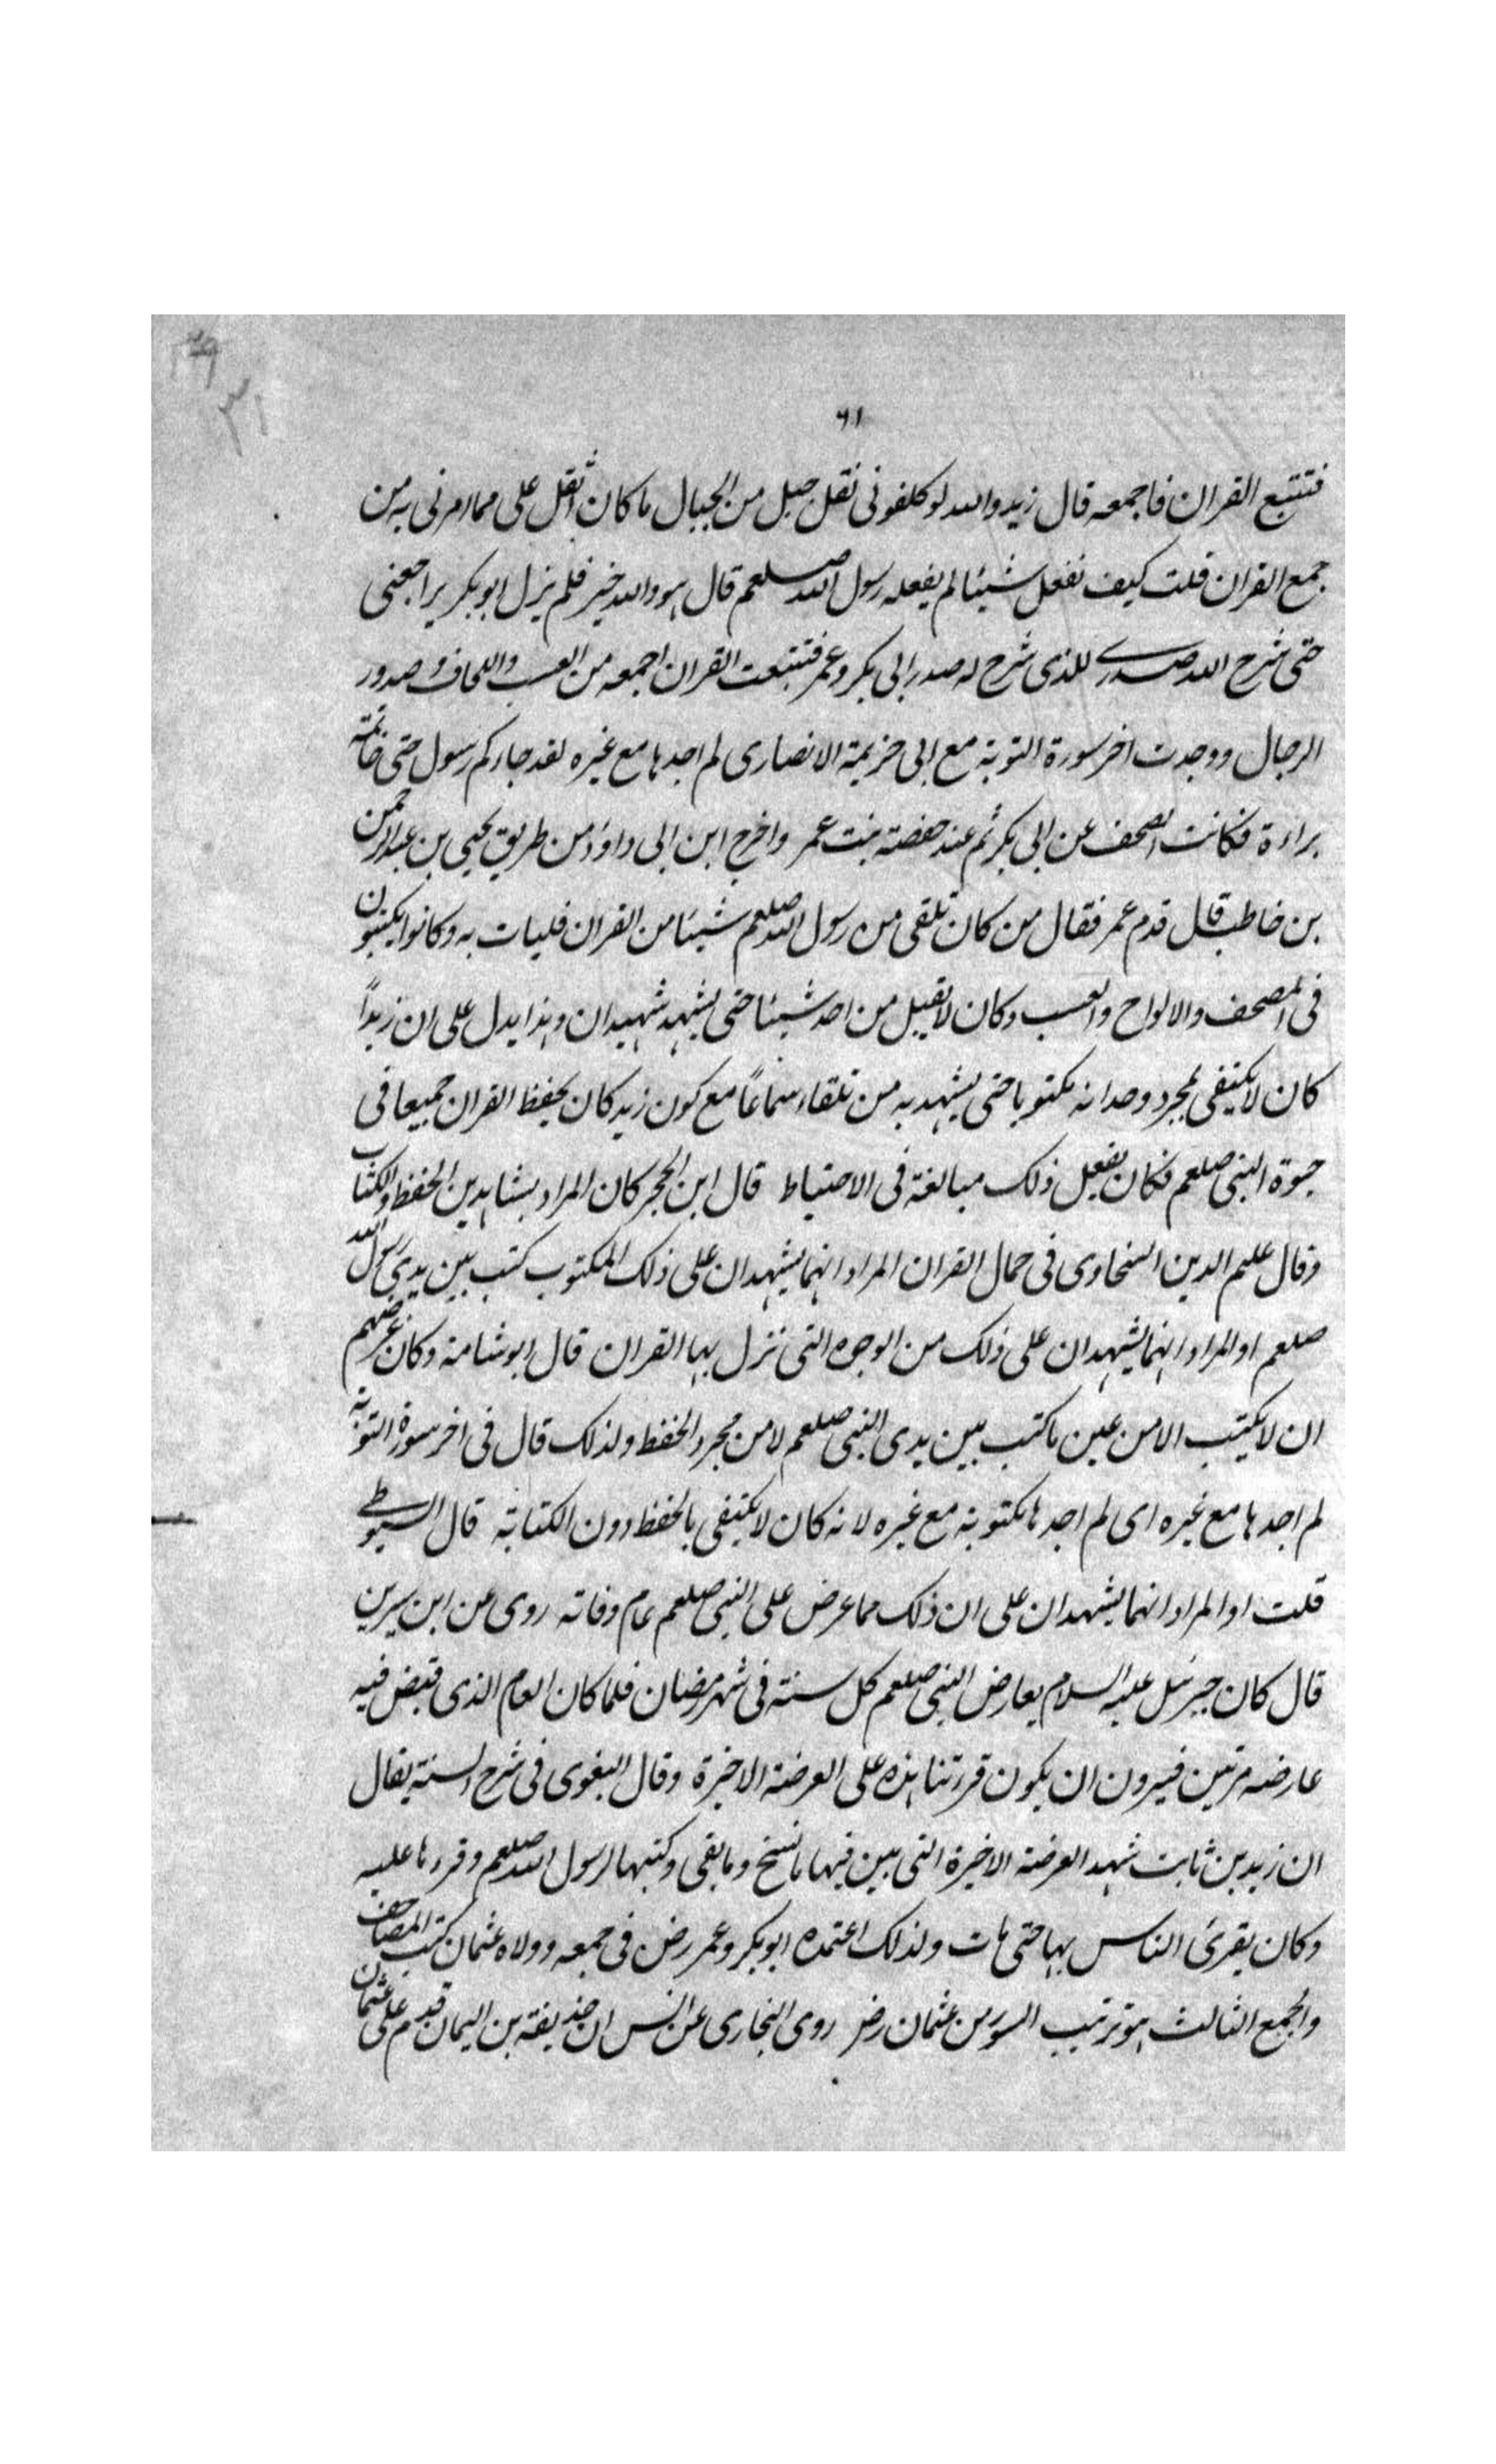 ٦١
فتتبع القران فاجمعه قال زيد والله لو كلفونى نقل جبل من الجبال ما كان اثقل على مما امرنى به من
جمع القران قلت كيف تفعل شيئا لم يفعله رسول الله صلعم قال هو والله خير فلم يزل ابو بكر يراجعنى
حتى شرح الله صدرى للذى شرح له صدر ابى بكر وعمر فتتبعت القران اجمعه من العسب واللحاف وصدور
الرجال ووجدت اخر سورة التوبة مع ابى خزيمة الانصارى لم اجدها مع غيره لقد جاءكم رسول حتى خاتمة
براءة فكانت الصحف عن ابى بكر ثم عند حفصة بنت عمر واخرج ابن ابى داود من طريق يحيى بن عبد الرحمن
بن خاطب قال قدم عمر فقال من كان تلقى من رسول الله صلعم شيئا من القران فليات به وكانوا يكتبون
فى المصحف والالواح والعسب وكان لا يقبل من احد شيئا حتى يشهد شهيدان وهذا يدل على ان زيداً
كان لا يكتفى لمجرد وجدانه مكتوبا حتى يشهد به من تلقاء سماعاً مع كون زيد كان يحفظ القران جميعا فى
حيوة النبى صلعم فكان يفعل ذلك مبالغة فى الاحتياط قال ابن الحجر كان المراد بشاهدين الحفظ والكتاب
وقال علم الدين السخاوى فى جمال القران المراد انهما يشهدان على ذلك المكتوب كتب بين يدى رسول الله
صلعم او المراد انهما يشهدان على ذلك من الوجوه التى نزل بها القران قال ابو شامة وكان غرضهم
ان لا يكتب الا من عين ما كتب بين يدى النبى صلعم لا من مجرد الحفظ ولذلك قال فى اخر سورة التوبة
لم اجدها مع غيره اى لم اجدها مكتوبة مع غيره لانه كان لا يكتفى بالحفظ دون الكتابة قال السيوطى
قلت او المراد انهما يشهدان على ان ذلك مما عرض على النبى صلعم عام وفاته روى عن ابن سيرين
قال كان جبرئيل عليه السلام يعارض النبى صلعم كل سنة فى شهر رمضان فلما كان العام الذى قبض فيه
عارضه مرتين فيرون ان يكون قرءتنا هذه على العرضة الاخيرة وقال البغوى فى شرح السنة يقال
ان زيد بن ثابت شهد العرضة الاخيرة التى بين فيها ما نسخ وما بقى وكتبها لرسول الله صلعم وقررها عليه
وكان يقرئ الناس بها حتى مات ولذلك اعتمده ابو بكر وعمر رض فى جمعه وولاه عثمان كتب المصاحف
والجمع الثالث هو ترتيب السور من عثمان رض روى البخارى عن انس ان حذيفة بن اليمان قدم على عثمان